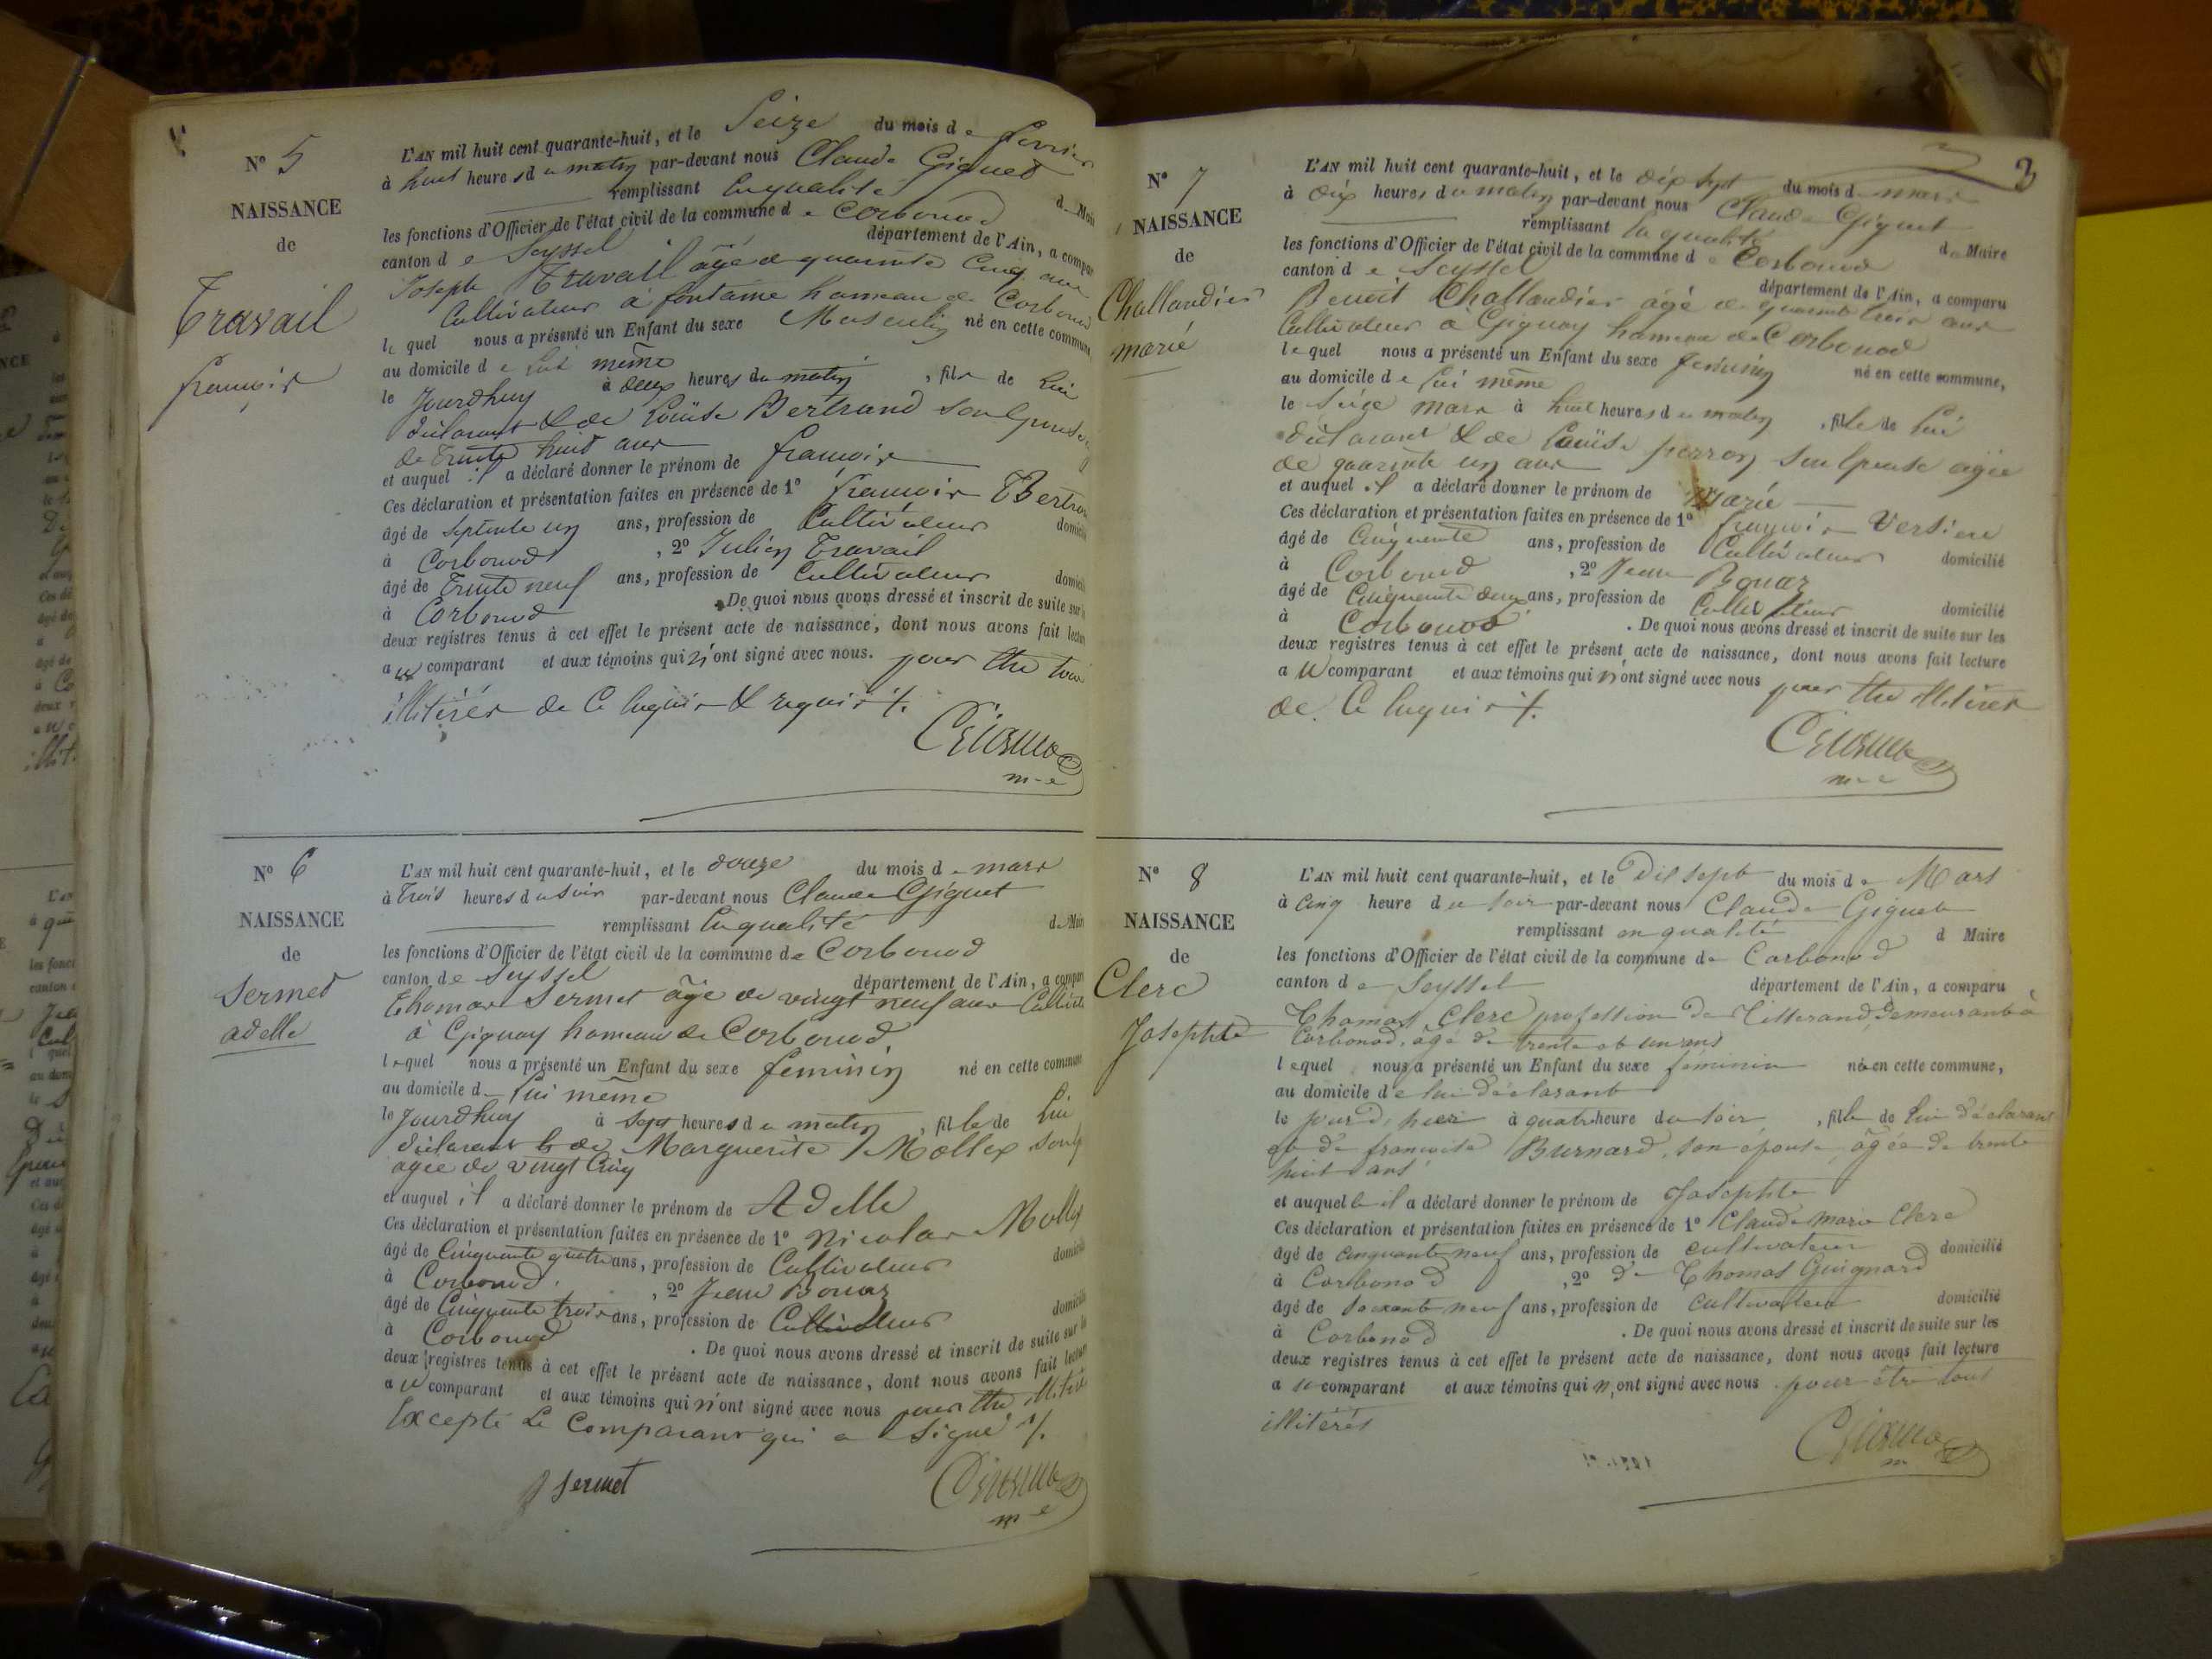 N° 5
NAISSANCE
de
Travail
francois
L'AN mil huit cent quarante-huit, et le Seize du mois de fevrier
à huit heures du matin par-devant nous Claude Giguet
remplissant en qualité de Mair
les fonctions d'Officier de l'état civil de la commune de Corbonod
canton de Seyssel département de l'Ain, a compar
Joseph Travail âgé de quarante Cinq ans
Cultivateur à fontaine hameau de Corbonod
lequel nous a présenté un Enfant du sexe Masculin né en cette commune,
au domicile de lui même
le Jourdhuy à deux heures du matin, fils de lui
déclarant & de Louise Bertrand son épouse
de trente huit ans
et auquel il a déclaré donner le prénom de francois
Ces déclaration et présentation faites en présence de 1° francois Bertran
âgé de septente un ans, profession de Cultivateur domicili
à Corbonod, 2° Julien Travail
âgé de Trente neuf ans, profession de Cultivateur domicili
à Corbonod. De quoi nous avons dressé et inscrit de suite sur l
deux registres tenus à cet effet le présent acte de naissance, dont nous avons fait lectur
au comparant et aux témoins qui n'ont signé avec nous. pour être tous
illitérés de ce enquis & requis ./.
m-e
N° 6
NAISSANCE
de
Sermet
adelle
L'AN mil huit cent quarante-huit, et le douze du mois de mars
à trois heures du soir par-devant nous Claude Giguet
remplissant en qualité de Mair
les fonctions d'Officier de l'état civil de la commune de Corbonod
canton de Seyssel département de l'Ain, a compar
Thomas Sermet âgé de vingt neuf ans Cultivat
à Gignay hameau de Corbonod
lequel nous a présenté un Enfant du sexe féminin né en cette commun
au domicile de lui même
le Jourdhuy à sept heures du matin, fille de lui
déclarant & de Marguerite Mollex son ép
agée de vingt Cinq
et auquel il a déclaré donner le prénom de Adelle
Ces déclaration et présentation faites en présence de 1° Nicolas Mollex
âgé de Cinquante quatre ans, profession de Cultivateur domicili
à Corbonod, 2° Jean Bonaz
âgé de Cinquante trois ans, profession de Cultivateur domicili
à Corbonod. De quoi nous avons dressé et inscrit de suite sur le
deux registres tenus à cet effet le présent acte de naissance, dont nous avons fait lectur
au comparant et aux témoins qui n'ont signé avec nous pour être illitéré
Excepté Le Comparant qui a Signé ./.
Sermet
m-e
3
N° 7
NAISSANCE
de
Challandier
marie
L'AN mil huit cent quarante-huit, et le dix sept du mois de mars
à dix heures du matin par-devant nous Claude Giguet
remplissant en qualité de Maire
les fonctions d'Officier de l'état civil de la commune de Corbonod
canton de Seyssel département de l'Ain, a comparu
Benoit Challandier âgé de quarante trois ans
Cultivateur à Gignay hameau de Corbonod
lequel nous a présenté un Enfant du sexe féminin né en cette commune,
au domicile de lui même
le Seize mars à huit heures du matin, fille de lui
déclarant & de Louise perron son épouse agée
de quarante un ans
et auquel il a déclaré donner le prénom de marie
Ces déclaration et présentation faites en présence de 1° françois
âgé de Cinquente ans, profession de Cultivateur domicilié
à Corbonod, 2° Jean Bonaz
âgé de Cinquente deux ans, profession de Cultivateur domicilié
à Corbonod. De quoi nous avons dressé et inscrit de suite sur les
deux registres tenus à cet effet le présent acte de naissance, dont nous avons fait lecture
au comparant et aux témoins qui n'ont signé avec nous pour être illitérés
de Ce enquis ./.
m-e
N° 8
NAISSANCE
de
Clerc
Josephte
L'AN mil huit cent quarante-huit, et le Dix sept du mois de Mars
à cinq heure du soir par-devant nous Claude Giguet
remplissant en qualité d Maire
les fonctions d'Officier de l'état civil de la commune de Corbonod
canton de Seyssel département de l'Ain, a comparu
Thomas Clerc profession de Tisserand demeurant à
Corbonod, âgé de trente et un ans
lequel nous a présenté un Enfant du sexe féminin né en cette commune,
au domicile de lui déclarant
le jour d'hier à quatre heure du soir, fille de lui déclarant
et de francoise Burnard, son épouse, âgée de trente
huit ans
et auquel le il a déclaré donner le prénom de Josephte
Ces déclaration et présentation faites en présence de 1° Claude Marie Clerc
âgé de cinquante neuf ans, profession de cultivateur domicilié
à Corbonod, 2° de Thomas Guignard
âgé de soixante neuf ans, profession de cultivateur domicilié
à Corbonod. De quoi nous avons dressé et inscrit de suite sur les
deux registres tenus à cet effet le présent acte de naissance, dont nous avons fait lecture
au comparant et aux témoins qui n'ont signé avec nous pour être tous
illitérés
m